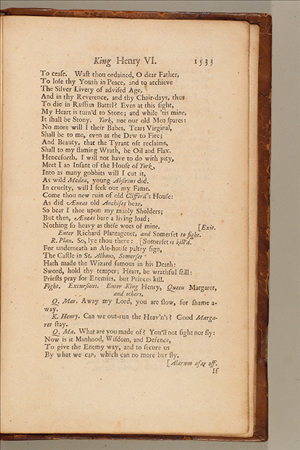 King Henry VI. 1533
To cease. Wast thou ordained, O dear Father,
To lose thy Youth in Peace, and to atchieve
The Silver Livery of advised Age,
And in thy Reverence, and thy Chair-days, thus
To die in Ruffian Battel? Even at this sight,
My Heart is turn'd to Stone; and while 'tis mine,
It shall be Stony. York, not our old Men spares:
No more will I their Babes, Tears Virginal,
Shall be to me, even as the Dew to Fire;
And Beauty, that the Tyrant oft reclaims,
Shall to my flaming Wrath, be Oil and Flax.
Henceforth, I will not have to do with pity,
Meet I an Infant of the House of York,
Into as many gobbits will I cut it,
As wild Medea, young Absirtus did.
In cruelty, will I seek out my Fame.
Come thou new ruin of old Clifford's House:
As did Æneas old Anchises bear,
So bear I thee upon my manly Sholders;
But then, Æneas bare a living load;
Nothing so heavy as these woes of mine. [Exit.
Enter Richard Plantagenet, and Somerset to fight.
R. Plan. So, lye thou there: [Somerset is kill'd.
For underneath an Ale-house paltry sign,
The Castle in St. Albans, Somerset
Hath made the Wizard famous in his Death:
Sword, hold thy temper; Heart, be wrathful still:
Priests pray for Enemies, but Princes kill.
Fight. Excursions. Enter King Henry, Queen Margaret,
and others.
Q. Mar. Away my Lord, you are slow, for shame a-
way.
K. Henry. Can we out-run the Heav'ns? Good Marga-
ret stay.
Q. Ma. What are you made of? You'll not fight nor fly:
Now is it Manhood, Wisdom, and Defence,
To give the Enemy way, and to secure us
By what we can, which can no more but fly.
[Alarum afar off.
If